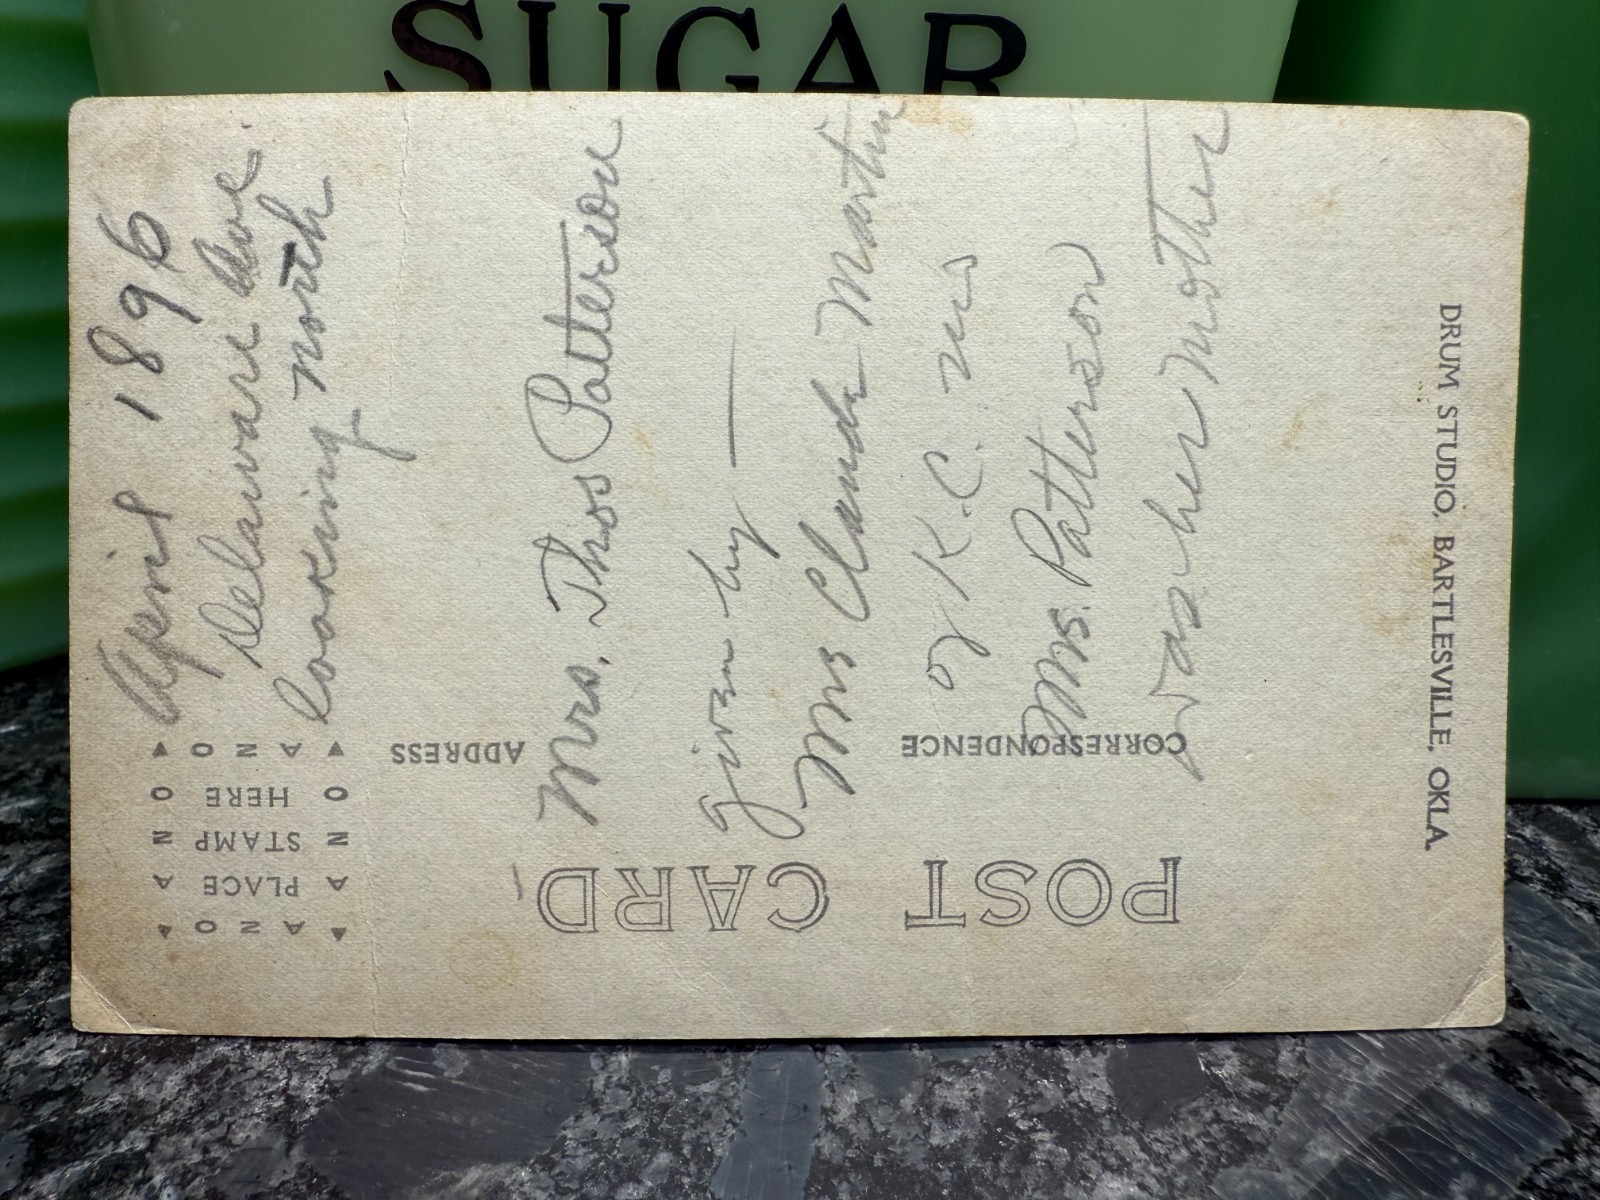 SUGAR
April 1896
Delaware Ave.
looking north
Mrs. Thos Patterson
given by —
Mrs Claude Martin
of K.C. Mo
Mrs. Patterson
was her mother
POST CARD
CORRESPONDENCE
ADDRESS
AZO
PLACE
STAMP
HERE
AZO
AZO
AZO
DRUM STUDIO, BARTLESVILLE, OKLA.